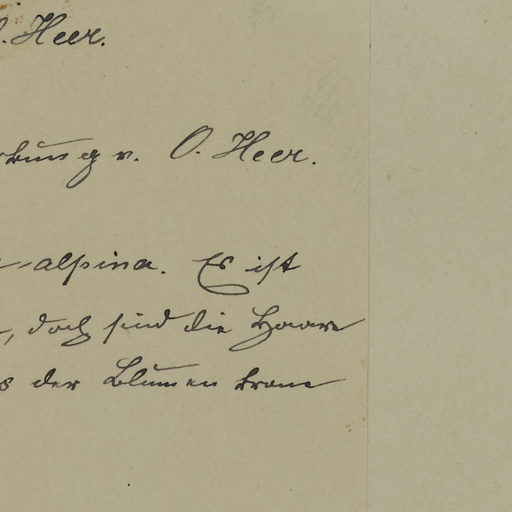 O. Heer.
rkung v. O. Heer.
-alpina. Es ist
, doch sind die Haare
s der Blumenkrone